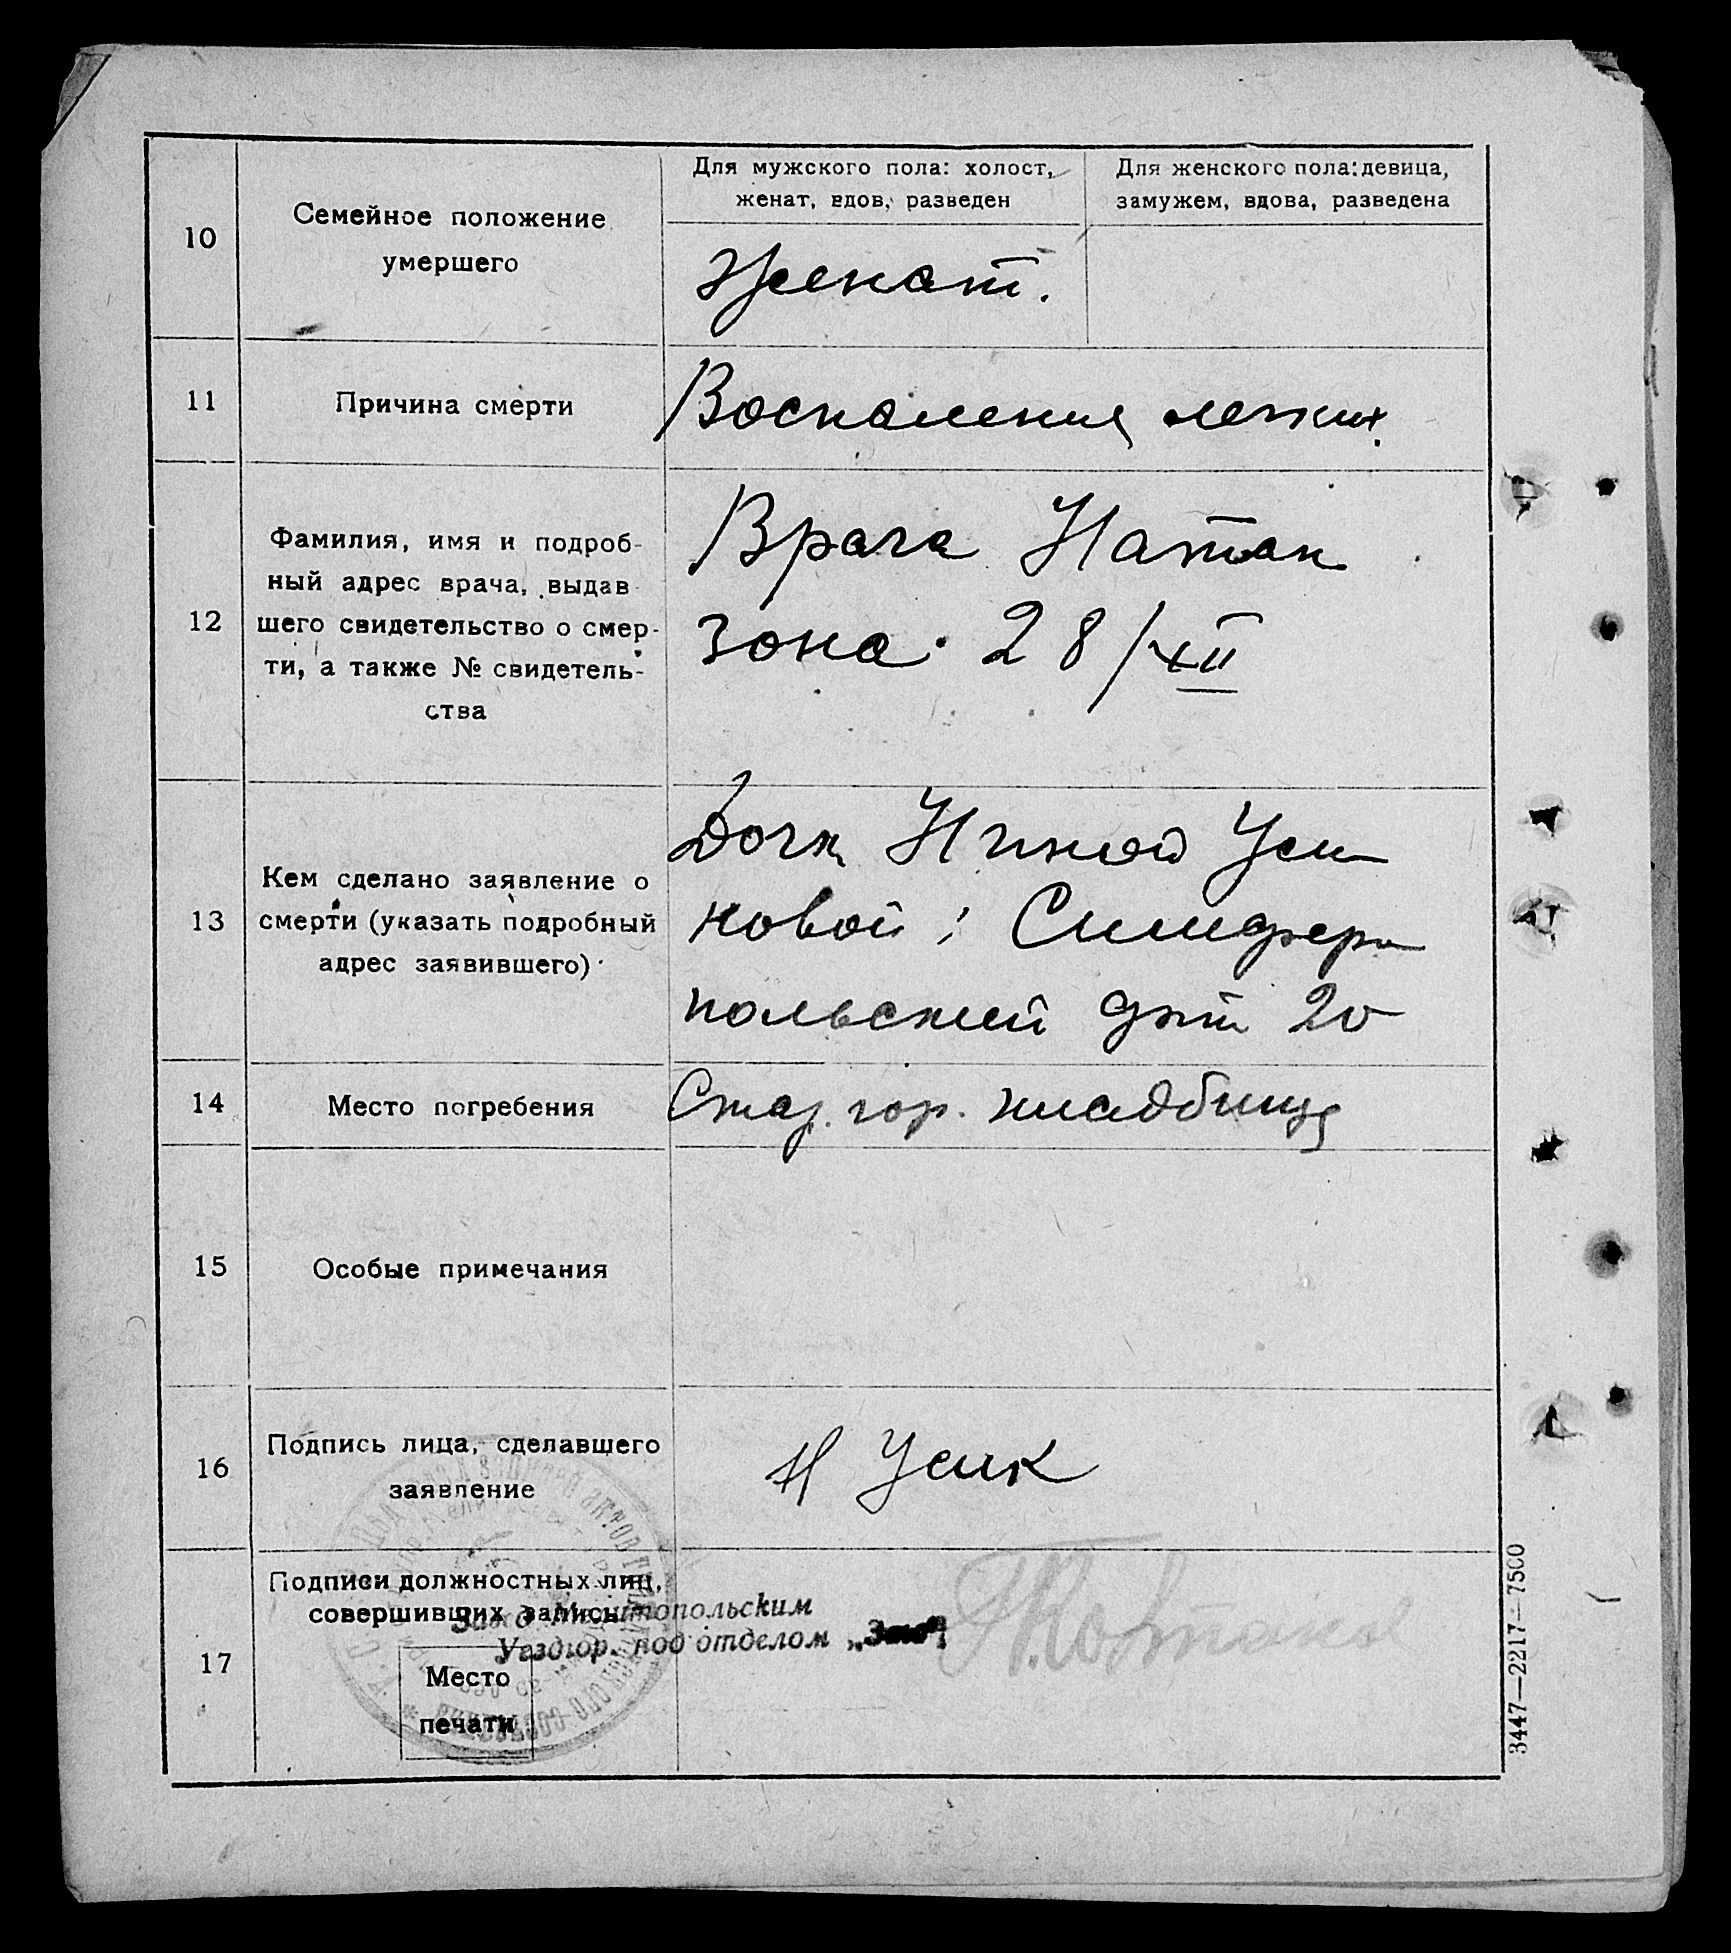 Для мужского пола: холост,
женат, вдов, разведен
Для женского пола: девица,
замужем, вдова, разведена
10
Семейное положение
умершего
Женат.
11
Причина смерти
Воспаления легких.
12
Фамилия, имя и подроб-
ный адрес врача, выдав
шего свидетельство о смер-
ти, а также № свидетель-
ства
Врача Натан
зона. 28/XII
13
Кем сделано заявление о
смерти (указать подробный
адрес заявившего)
Дочк Ниной Уси
ковой; Симферо
польский 20
14
Место погребения
гор. кладбище
15
Особые примечания
16
Подпись лица, сделавшего
заявление
Н Усик
17
Подписи должностных лиц,
совершивших запись
Завед. Мелитопольским
Уездгор. подотделом „Загс"
Место
печати
3447—2217—7500